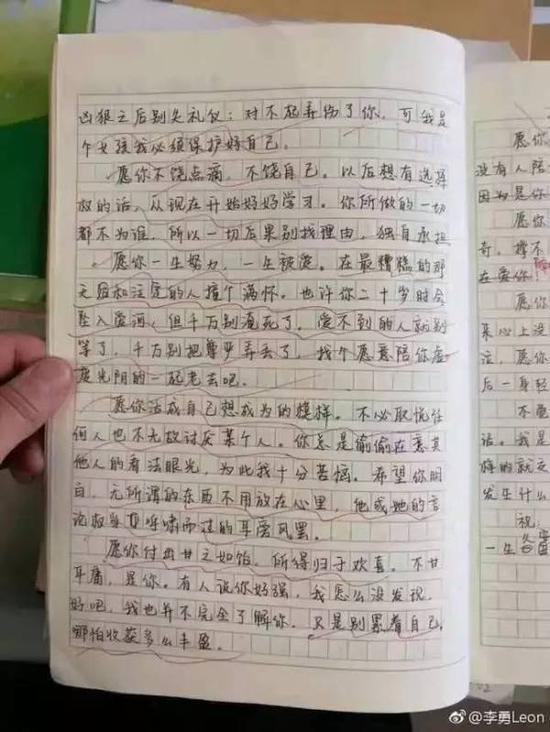 凶狠之后别失礼仪：对不起弄伤了你，可我是
个女孩我必须保护好自己。
愿你不饶点滴，不饶自己。以后想有选择
权的话，从现在开始好好学习。你所做的一切
都不为谁，所以一切后果别找理由，独自承担
愿你一生努力，一生被爱。在最糟糕的那
天后和注定的人撞个满怀。也许你二十岁时会
坠入爱河，但千万别淹死了，爱不到的人就别
等了，千万别把尊严弄丢了，找个愿意陪你虚
度光阴的一起老去吧。
愿你活成自己想成为的模样。不必取悦任
何人也不无故讨厌某个人。你总是偷偷在意其
他人的看法眼光，为此我十分苦恼。希望你明
白，无所谓的东西不用放在心里，他或她的言
论权当呼啸而过的耳旁风罢。
愿你付出甘之如饴，所得归于欢喜。不甘
平庸，是你。有人说你好强，我怎么没发现，
好吧，我也并不完全了解你，只是别累着自己，
哪怕收获多么丰盈。
愿你
没有人陪
因为是你
愿你
奇，撑不
在爱你
愿你
某心上没
注，愿你
后一身轻
不要
话。我是
样的就
发生什么
祝：
一生
@李勇Leon